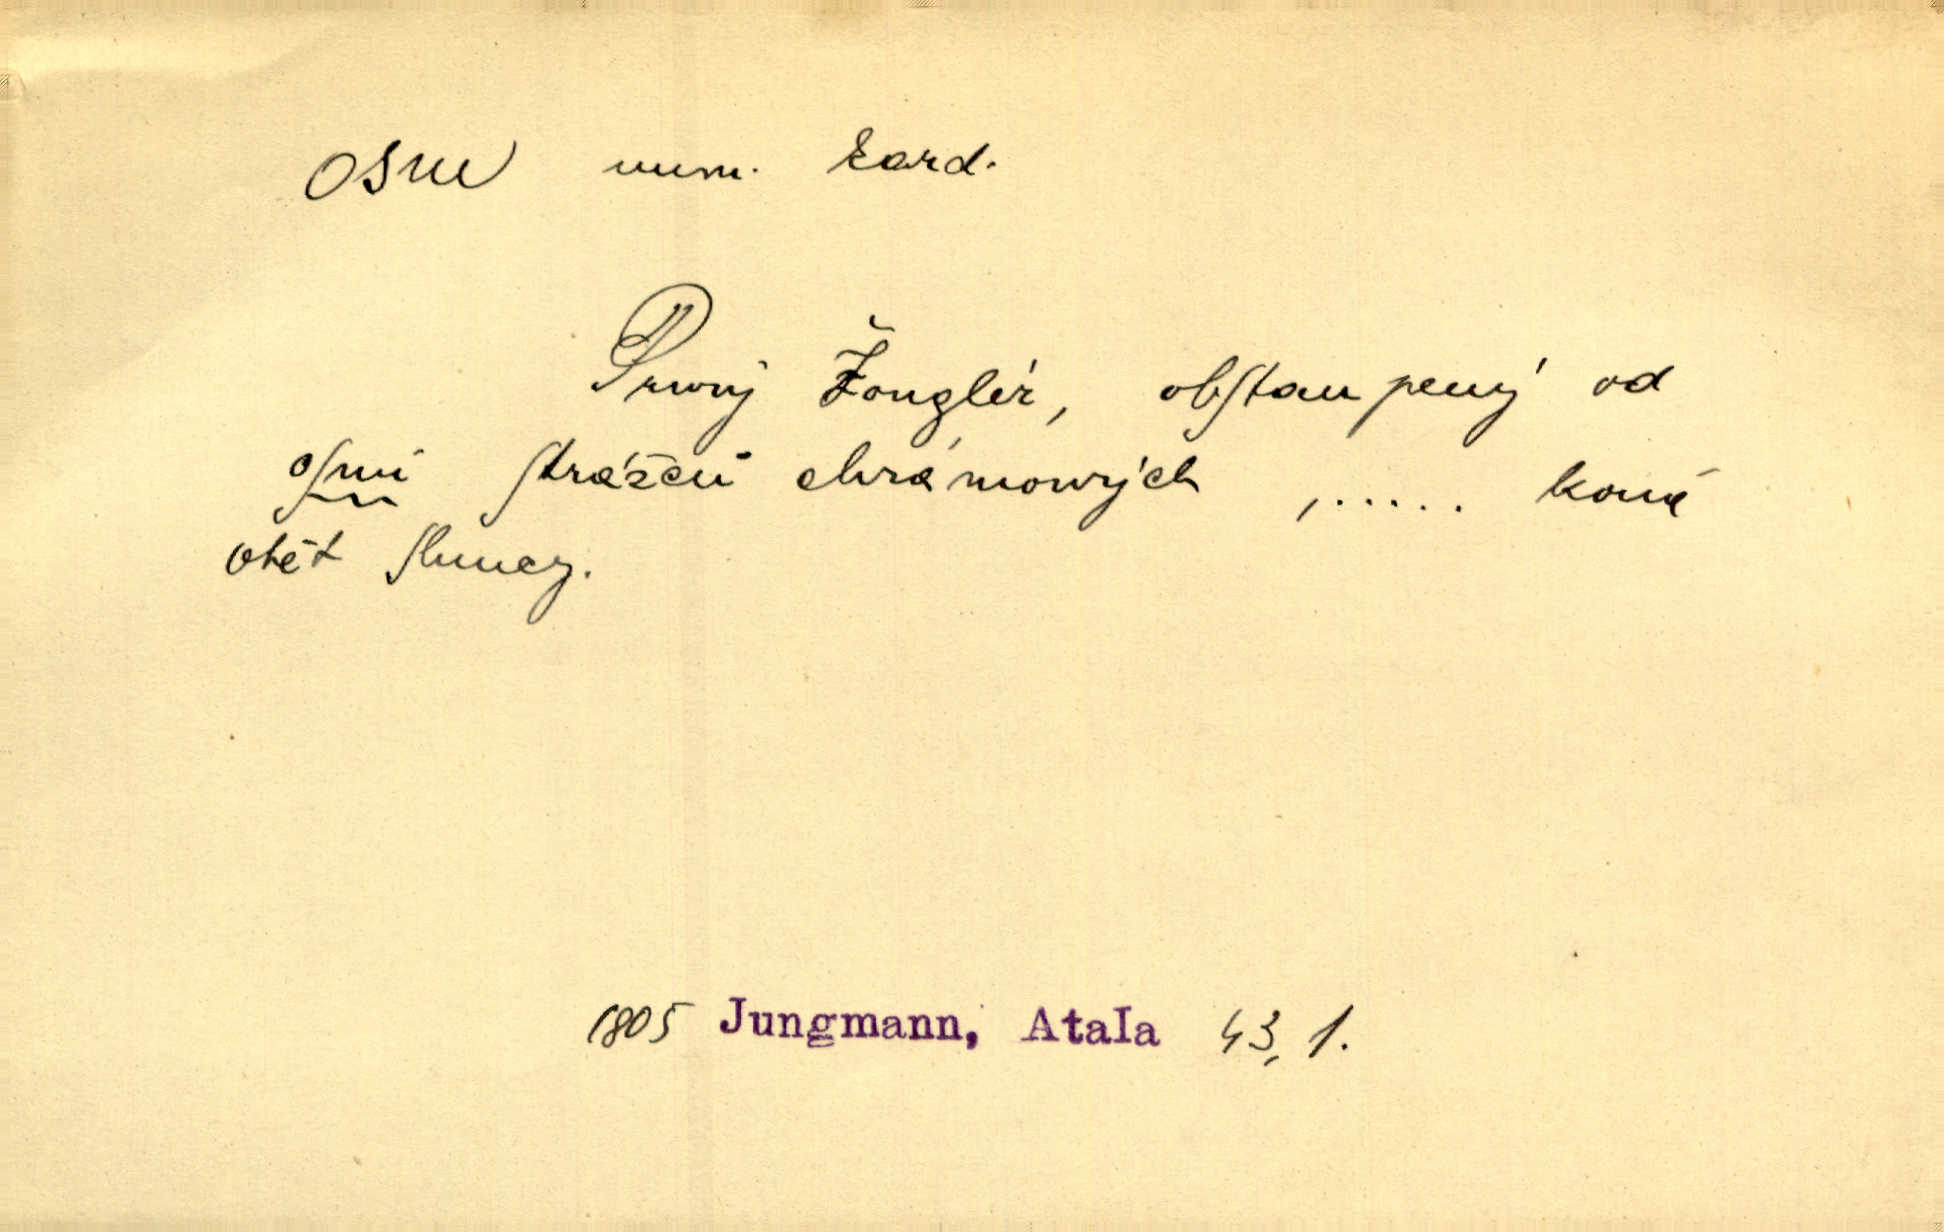 osm num. kard.
Prwnj Žonglér, obſtaupený od
oſmi ſtrážců chrámowých , ..... koná
obět ſluncy.
1805 Jungmann, Atala 43, 1.